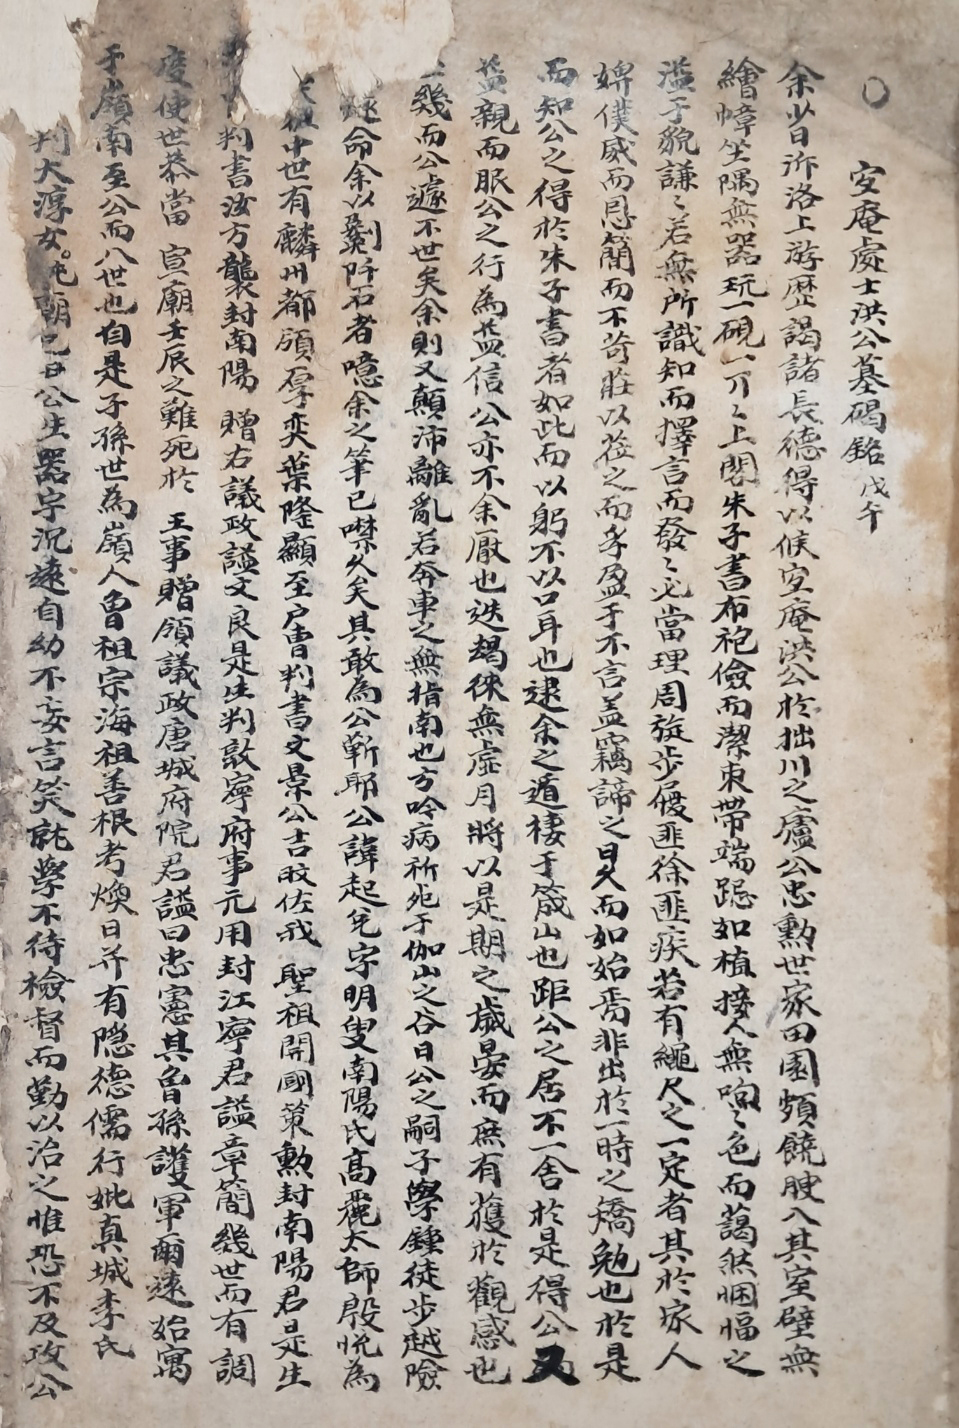 安庵處士洪公墓碣銘 戊午
余少日泝洛上游歷謁諸長德得以候安庵洪公於拙川之廬公忠勳世家田園頗饒腴入其室壁無
繪幛坐隅無器玩一硯一丌丌上閣朱子書布袍儉而潔束帶端跽如植接人無呴呴色而藹然悃愊之
溢于貌謙謙若無所識知而擇言而發發必當理周旋步履匪徐匪疾若有繩尺之一定者其於家人
婢僕威而恩簡而不苛莊以莅之而孚盈于不言盖竊諦之日久而如始焉非出於一時之矯勉也於是
而知公之得於朱子書者如此而以躬不以口耳也逮余之遁棲于箴山也距公之居不一舍於是得公
益親而服公之行爲益信公亦不余厭也迭朅徠無虛月將以是期之歲晏而庶有獲於觀感也
幾而公遽不世矣余則又顚沛離亂若奔車之無指南也方吟病祈死于伽山之谷日公之嗣子學鍾徒步越險
命余以劖阡石者噫余之筆已噤久矣其敢爲公蘄耶公諱起兌字明叟南陽氏高麗太師殷悅爲
中世有麟州都領厚奕葉隆顯至戶曹判書文景公吉旼佐我 聖祖開國策勳封南陽君是生
判書汝方襲封南陽 贈右議政謚文良是生判敦寧府事元用封江寧君謚章簡幾世而有調
度使世恭當 宣廟壬辰之難死於 王事贈領議政唐城府院君謚曰忠憲其曾孫護軍爾遠始寓
于嶺南至公而八世也自是子孫世爲嶺人曾祖宗海祖善根考煥日并有隱德儒行妣真城李氏
判大淳女 公生器宇沉遠自幼不妄言笑就學不待檢督而勤以治之惟恐不及攻公